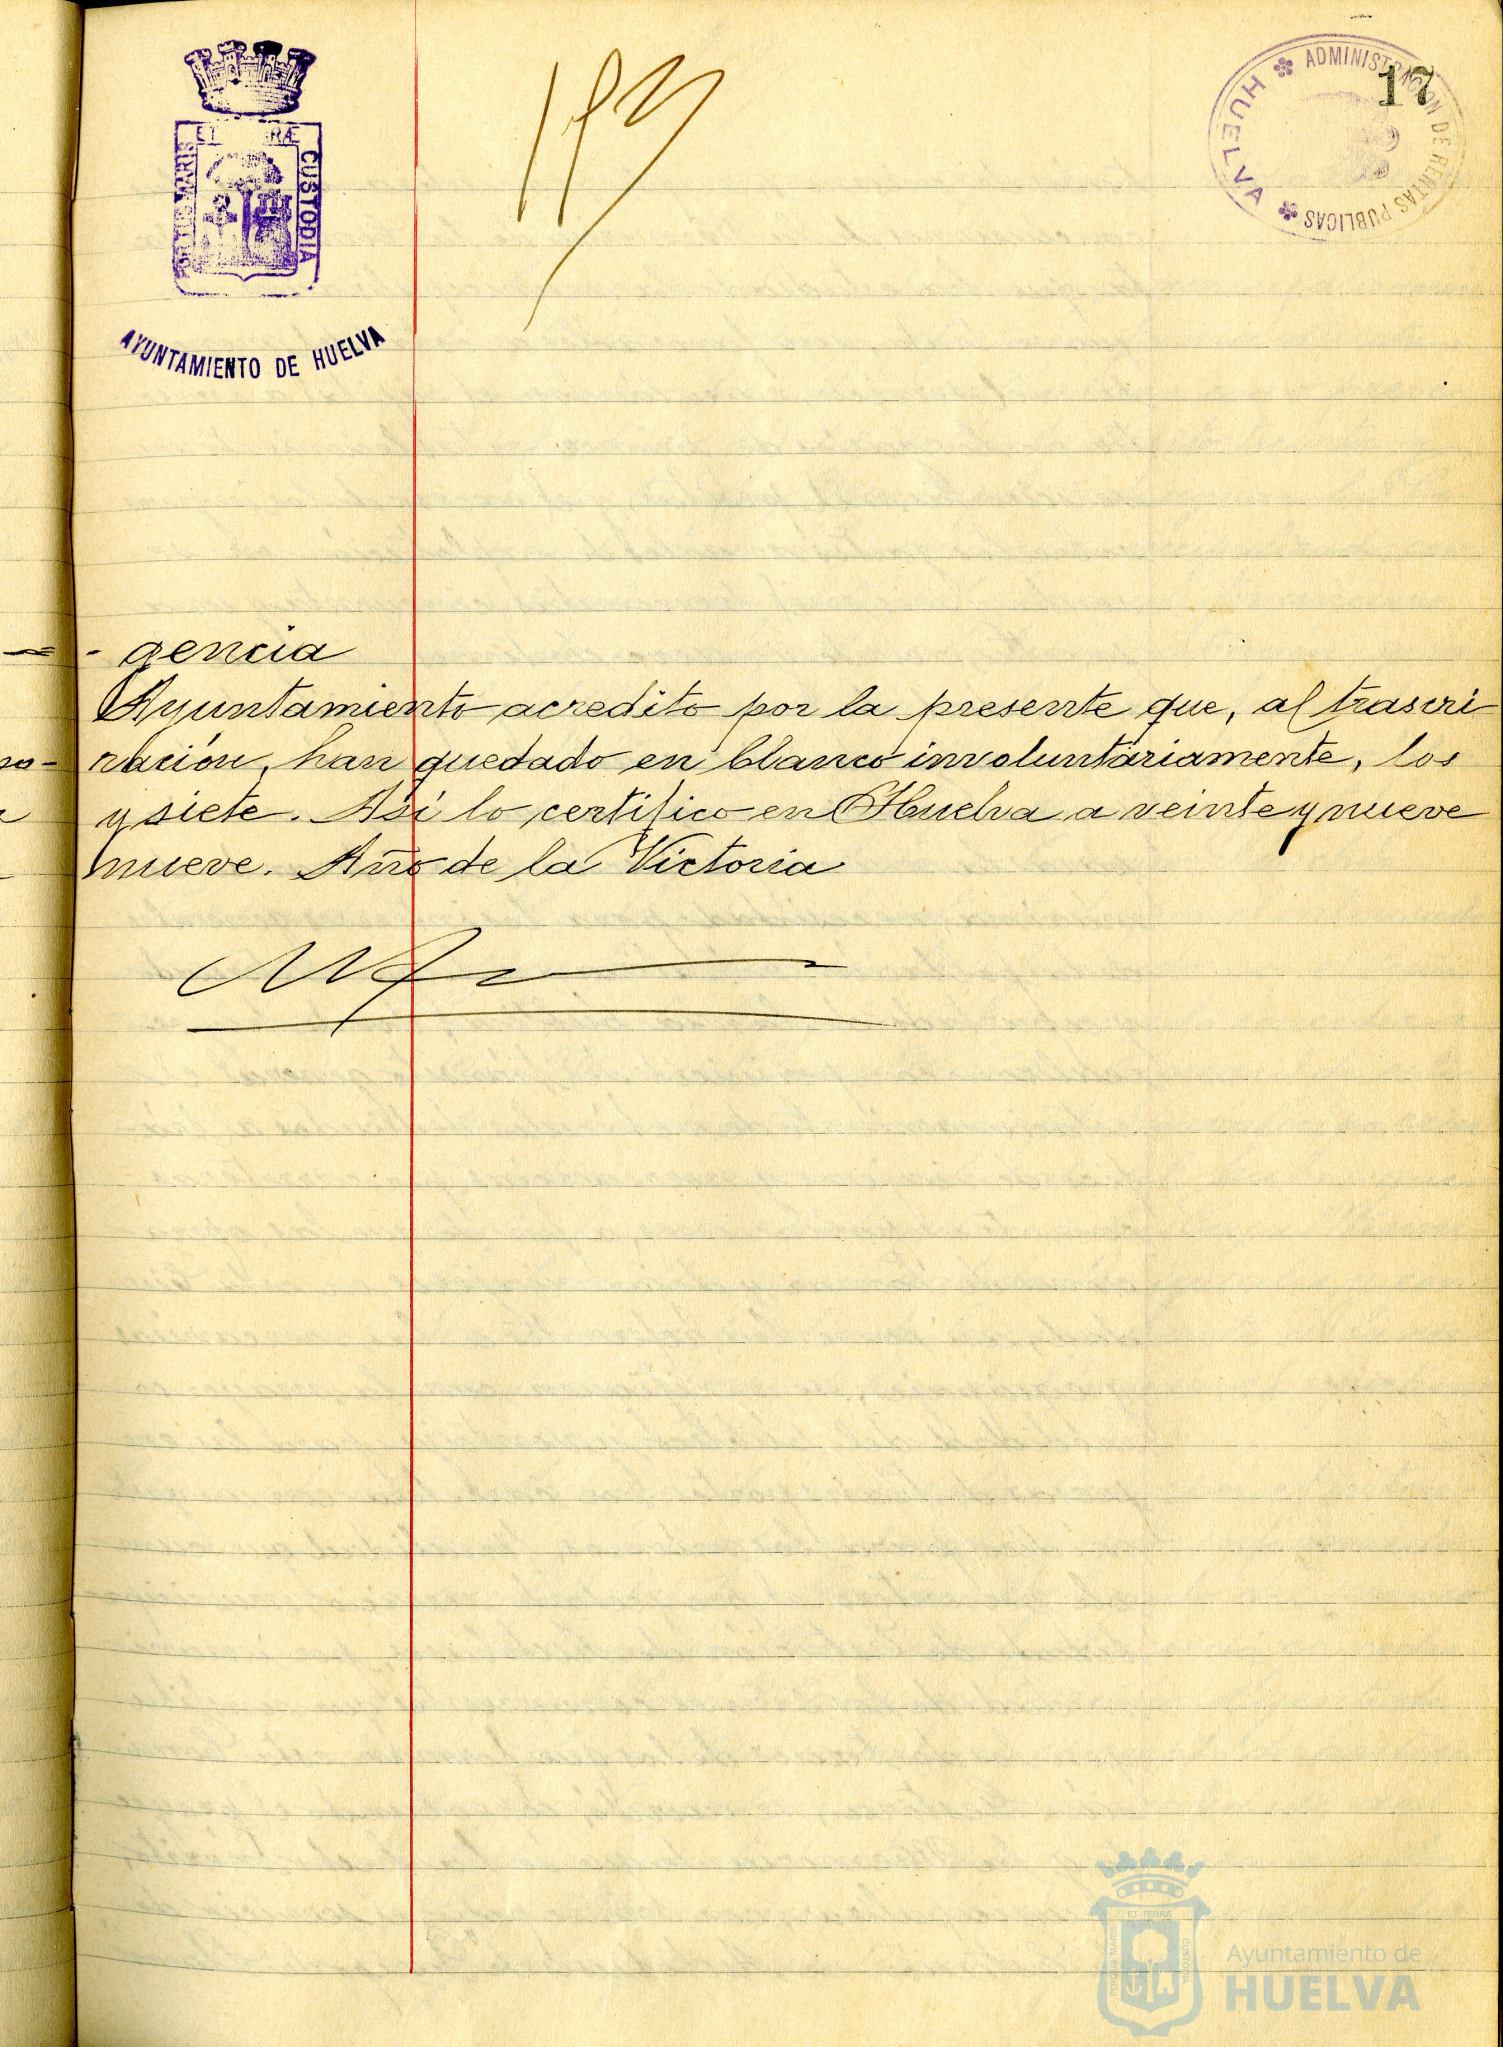 17
ADMINISTRACION DE RENTAS PUBLICAS
HUELVA
PORTUS MARIS ET TERRÆ CUSTODIA
AYUNTAMIENTO DE HUELVA
- gencia
Ayuntamiento acredito por la presente que, al trascri
ración, han quedado en blanco involuntariamente, los
y siete. Así lo certifico en Huelva a veinte y nueve
nueve. Año de la Victoria
ET TERRA
PORTUS MARIS
CUSTODIA
Ayuntamiento de
HUELVA